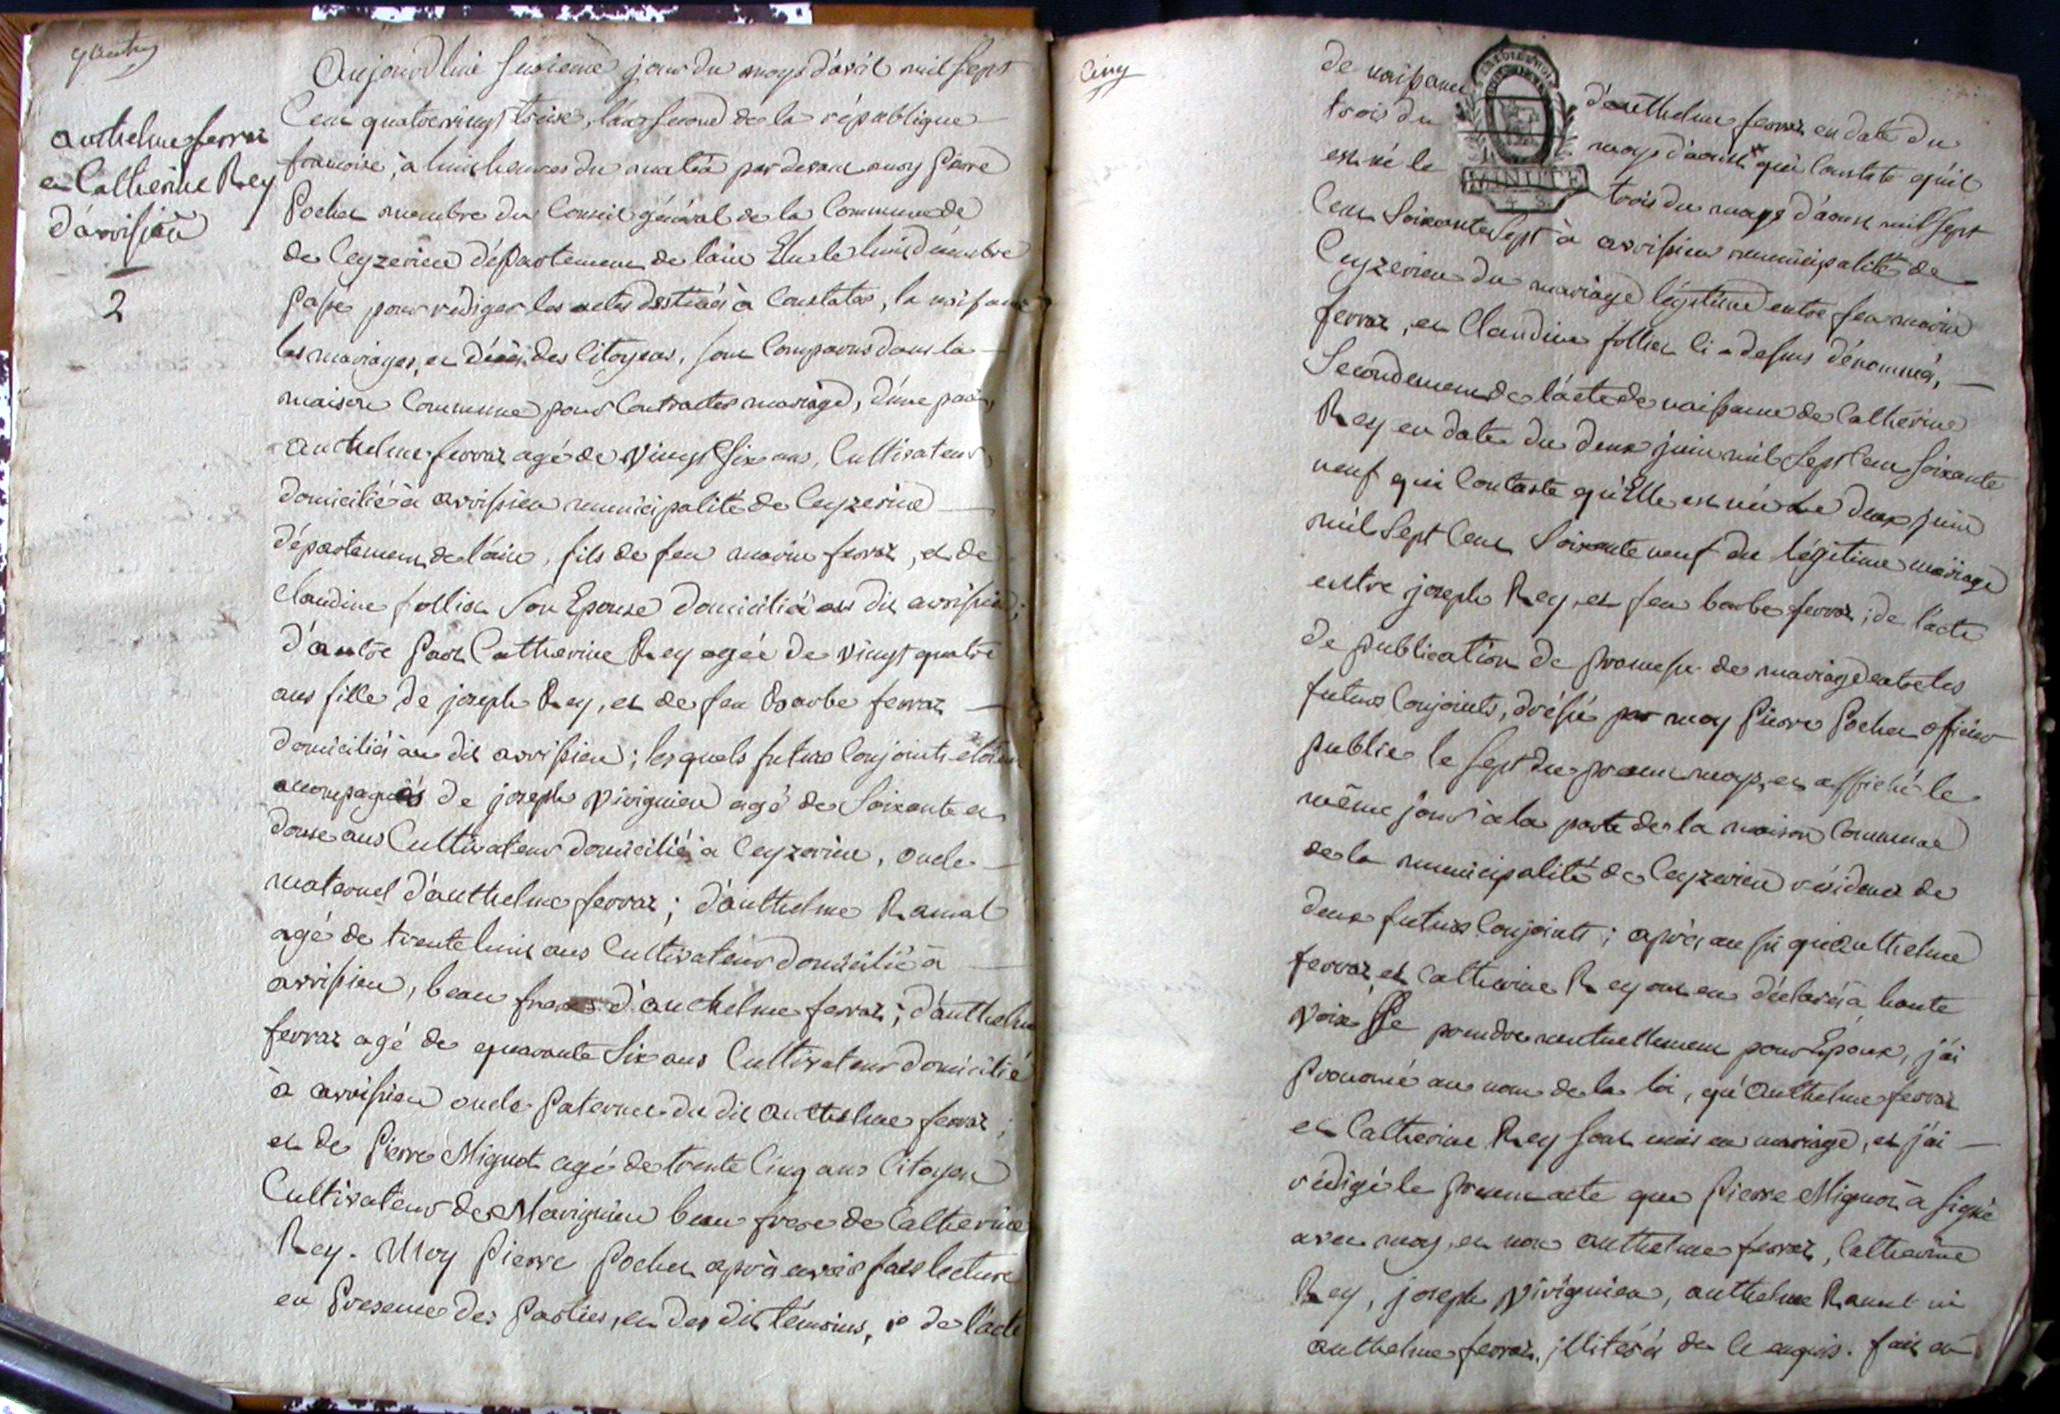 quatre
anthelme ferraz
et Catherine Rey
d'avrissieu
2
Aujourdhui seizieme jour du moys d'avril mil sept
Cent quatrevingt treize, l'an second de la république
francoise, à huit heures du matin par devant moy pierre
Pochet membre du Conseil général de la Commune de
de Ceyzerieu département de lain Elu le huit décembre
passé pour rédiger les actes destinés à Constater, la naissance
les mariages, et décès des Citoyens, sont Comparus dans la
maison Commune pour Contracter mariage, d'une part,
anthelme ferraz agé de vingt six ans, Cultivateur
domicilié à avrissieu municipalité de Ceyzerieu
département de l'ain, fils de feu marin ferraz, et de
Claudine follier son Epouse domiciliée au dit avrissieu;
d'autre part Catherine Rey agée de vingt quatre
ans fille de joseph Rey, et de feu Barbe ferraz
domiciliés au dit avrissieu; lesquels futurs Conjoints etoient
accompagnés de joseph vivignien agé de soixante et
douse ans Cultivateur domicilié à Ceyzerieu, oncle
maternel d'anthelme ferraz; d'anthelme Ramat
agé de trente huit ans Cultivateur domicilié à
avrissieu, beau frere d'anthelme ferraz; d'anthelme
ferraz agé de quarante six ans Cultivateur domicilié
à avrissieu oncle paternel du dit anthelme ferraz;
et de Pierre Mignot agé de trente Cinq ans Citoyen
Cultivateur de Mavignieu beau frere de Catherine
Rey. Moy Pierre Pochet après avoir fait lecture
en presence des parties, et des dit témoins, 1° de l'acte
Cinq
de naissance d'anthelme ferraz en date du
trois du moys d'aoust qui Constate qu'il
est né le trois du moys d'aoust mil sept
Cent soixante sept à avrissieu municipalité de
Ceyzerieu du mariage légitime entre feu marin
ferraz, et Claudine follier Ci-dessus dénommés,
Secondement de l'acte de naissance de Catherine
Rey en date du deux juin mil sept Cent soixante
neuf qui Constate qu'Elle est née le deux juin
mil sept Cent soixante neuf du légitime mariage
entre joseph Rey, et feu barbe ferraz; de l'acte
de publication de promesse de mariage entre les
futurs Conjoints, dréssé par moy Pierre Pochet officier
public le sept du present moys, et affiché le
même jour à la porte de la maison Commune
de la municipalité de Ceyzerieu résidence de
deux futurs Conjoints; après aussi qu'anthelme
ferraz et Catherine Rey ont eu déclaré à haute
voix se prendre mutuellement pour Epoux, j'ai
Prononcé au nom de la loi, qu'anthelme ferraz
et Catherine Rey sont unis en mariage, et j'ai
rédigé le present acte que Pierre Mignot à signé
avec moy, et non anthelme ferraz, Catherine
Rey, joseph vivignien, anthelme Ramat ni
anthelme ferraz, illiterés de ce enquis. fait en